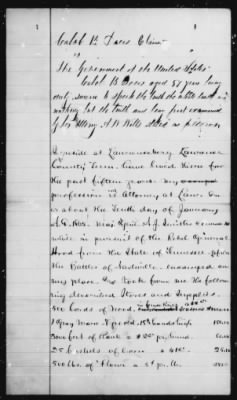 Caleb B. Davis Claim
vs
The Government of the United States
Caleb B. Davis aged 57 years being
duly sworn to speak the truth the whole truth and
nothing but the truth and being first examined
by his Attorney A. B. Wills states as follows
I reside at Lawrenceburg Lawrence
County Tenn. have lived there for
the past fifteen years. My
profession is Attorney at Law. On
or about the Tenth day of January
A.D. 1865. Maj. Genl. A. J. Smiths
while in pursuit of the Rebel General
Hood from the State of Tennessee after
the Battle of Nashville. encamped on
my place. and took from me the fol
lowing described Stores and Supplies.
500 Cords of Wood.
1 Gray Mare 8 yr old 15½ hands high
3000 feet of Plank @ $20 per hund.
25 bbls of corn @ $10.
500 lbs. of Flour @ 5¢ pr lb.